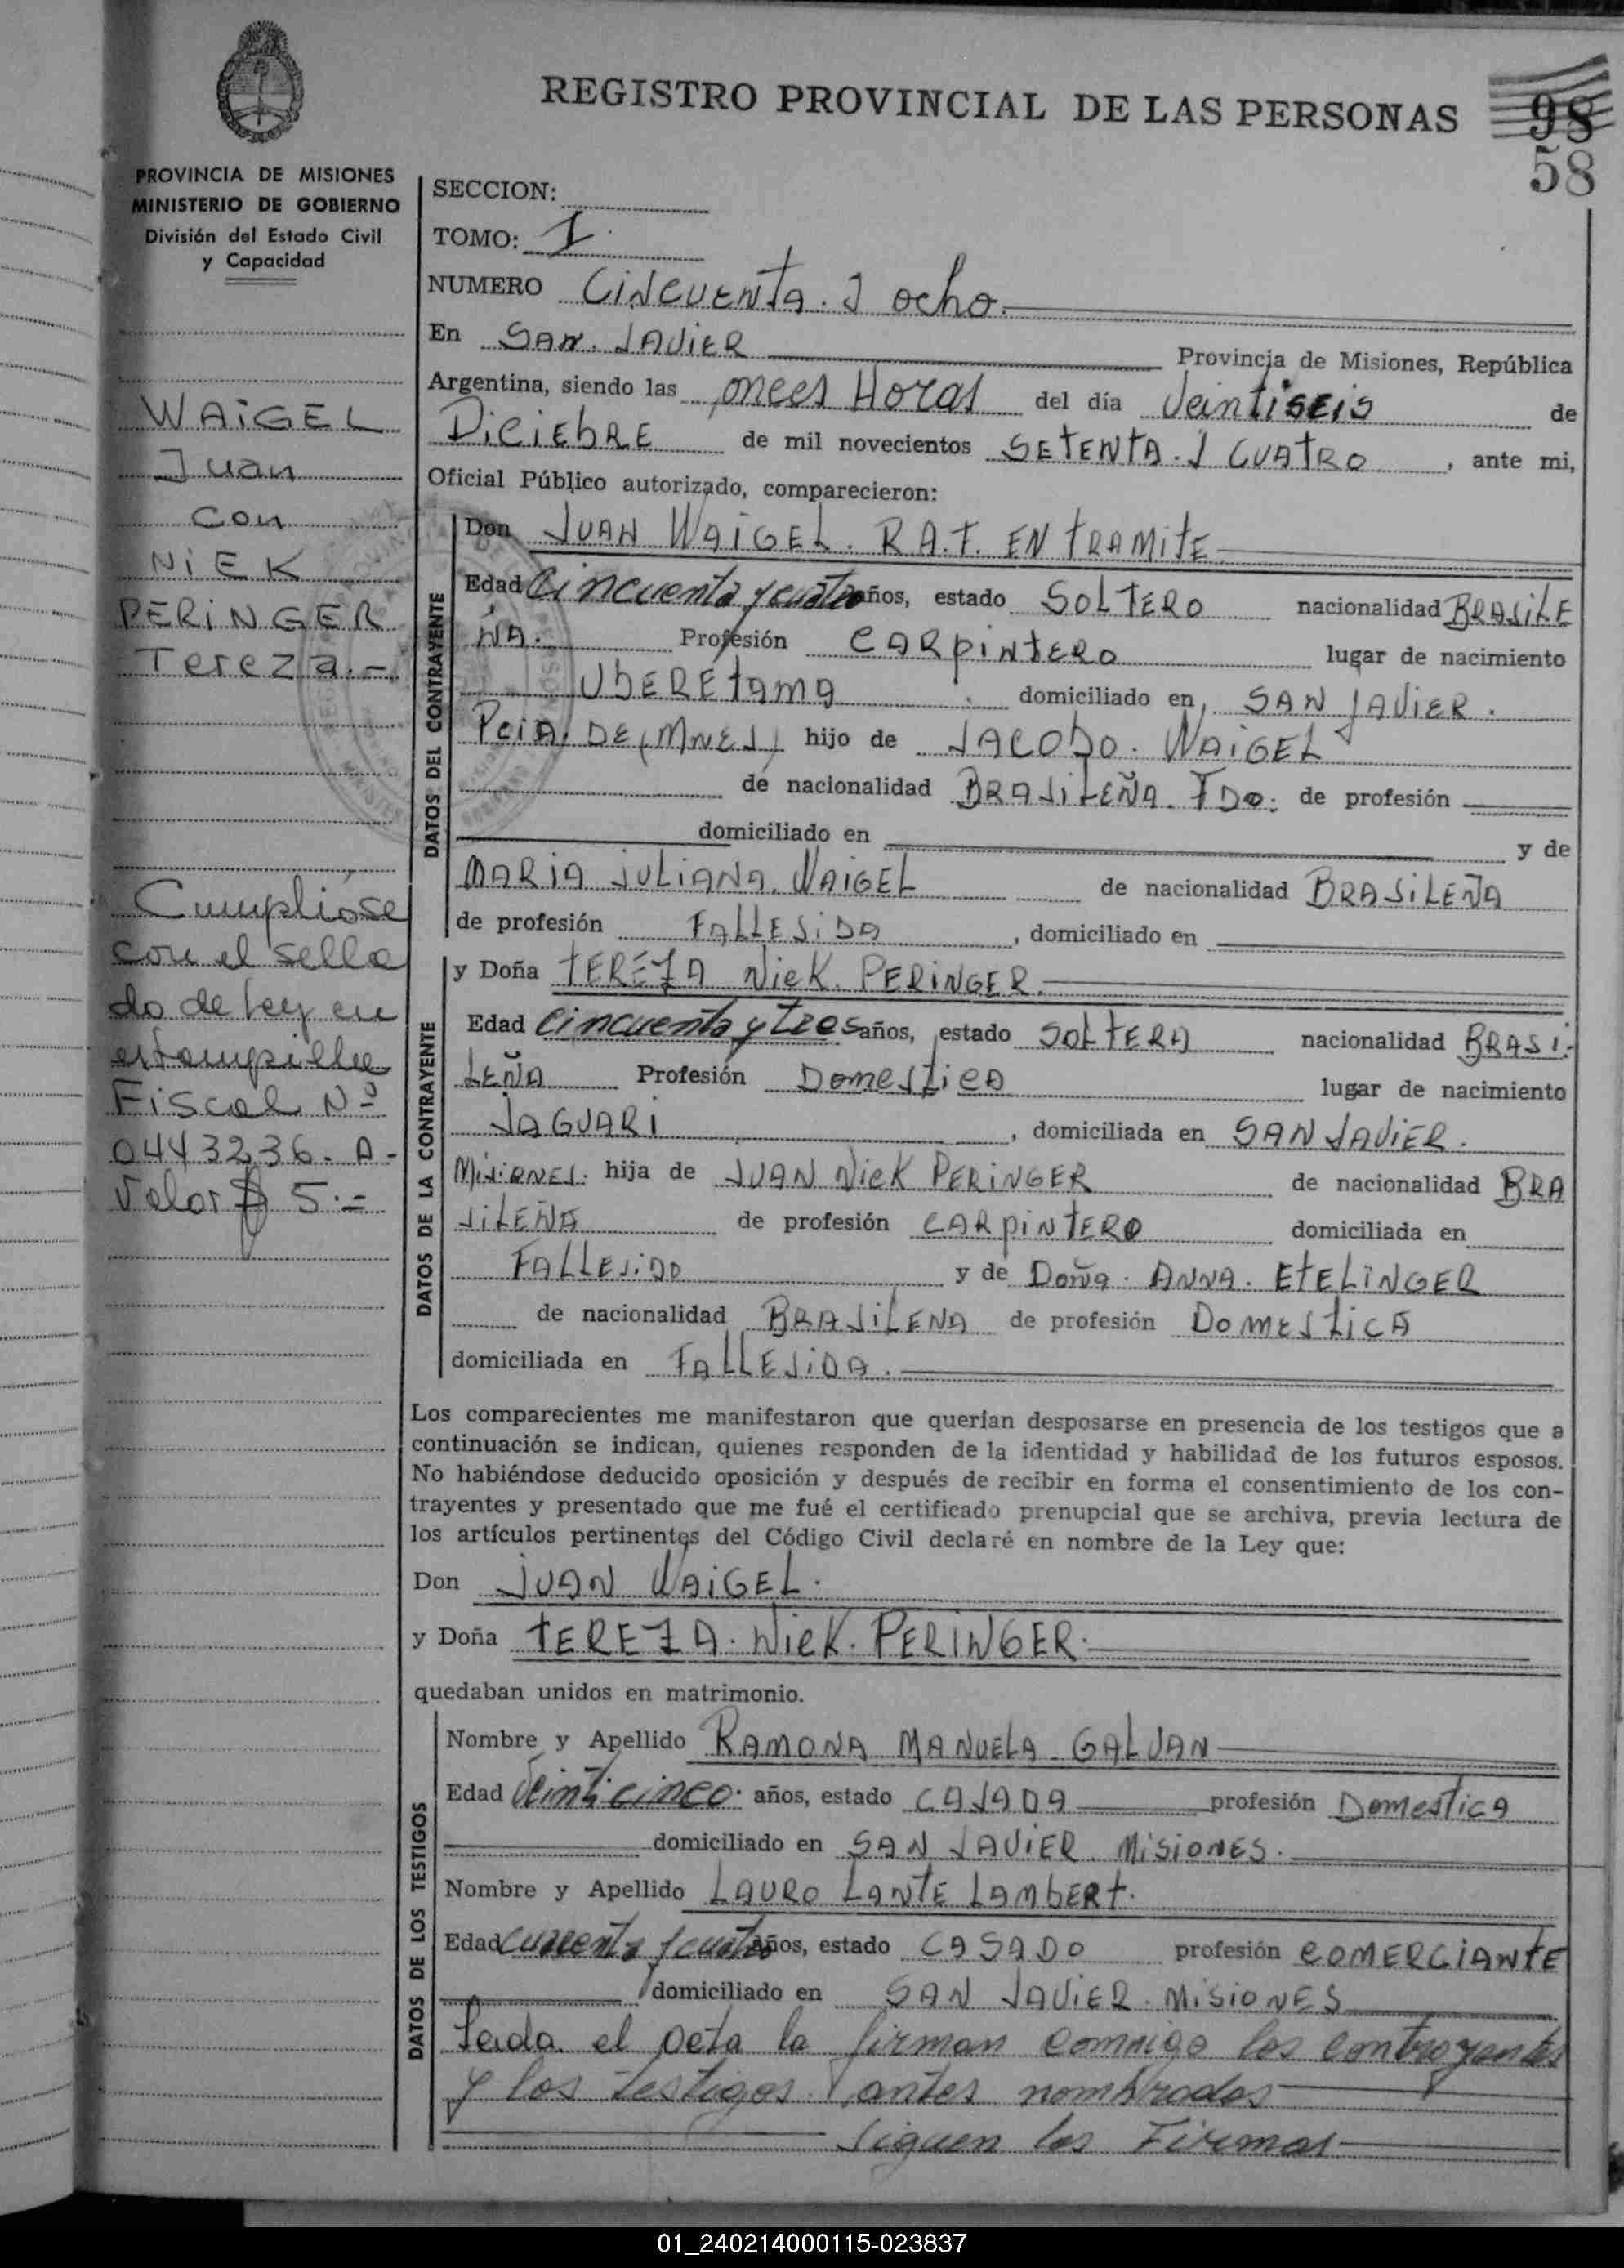 REGISTRO PROVINCIAL DE LAS PERSONAS
98
58
PROVINCIA DE MISIONES
MINISTERIO DE GOBIERNO
División del Estado Civil
y Capacidad
WAIGEL
Juan
con
NIEK
PERINGER
Tereza.-
Cumplióse
con el sella
do de Ley en
estampilla
Fiscal Nº
0443236-A-
Valor $ 5.=
SECCION:
TOMO: I
NUMERO Cincuenta y ocho.
En San Javier Provincia de Misiones, República
Argentina, siendo las onces Horas del día Veintiseis de
Diciebre de mil novecientos SETENTA y CUATRO, ante mi,
Oficial Público autorizado, comparecieron:
DATOS DEL CONTRAYENTE
Don JUAN WAIGEL. R.A.F. EN tRAMitE
Edad Cincuenta y cuatro años, estado SOLTERO nacionalidad BRASILE
ÑA. Profesión CARpiNtERO lugar de nacimiento
UbEREtama domiciliado en SAN JAVIER.
Pcia. DE (MNES) hijo de JACObO. WAIGEL
de nacionalidad BRASILEÑA. FDO: de profesión
domiciliado en y de
MARIA JULIANA. WAIGEL de nacionalidad BRASILEÑA
de profesión FALLESIDA, domiciliado en
DATOS DE LA CONTRAYENTE
y Doña tEREZA NieK. PERINGER.
Edad Cincuenta y tres años, estado SOLtERA nacionalidad BRASi-
LEÑA Profesión Domestica lugar de nacimiento
JAGUARI, domiciliada en SAN JAVIER.
MisiONES. hija de JUAN NieK PERINGER de nacionalidad BRA
SILEÑA de profesión CARpiNtERO domiciliada en
FALLESiDO y de Doña. ANNA. EtELINGER
de nacionalidad BRASILENA de profesión DoMEStiCA
domiciliada en FALLESIDA.
Los comparecientes me manifestaron que querían desposarse en presencia de los testigos que a
continuación se indican, quienes responden de la identidad y habilidad de los futuros esposos.
No habiéndose deducido oposición y después de recibir en forma el consentimiento de los con-
trayentes y presentado que me fué el certificado prenupcial que se archiva, previa lectura de
los artículos pertinentes del Código Civil declaré en nombre de la Ley que:
Don JUAN WAIGEL.
y Doña tEREZA. NieK. PERINGER.
quedaban unidos en matrimonio.
DATOS DE LOS TESTIGOS
Nombre y Apellido RAMONA MANUELA GALVAN
Edad Veinticinco. años, estado CASADA profesión Domestica
domiciliado en SAN JAVIER. MISIONES.
Nombre y Apellido LAURO LANTE LAMbERt.
Edad cuarenta y cuatro años, estado CASADO profesión COMERCIANtE
domiciliado en SAN JAVIER. MISIONES
Leida el acta la firman conmigo los contrayentes
y los testigos antes nombrados
Siguen las Firmas
01_240214000115-023837